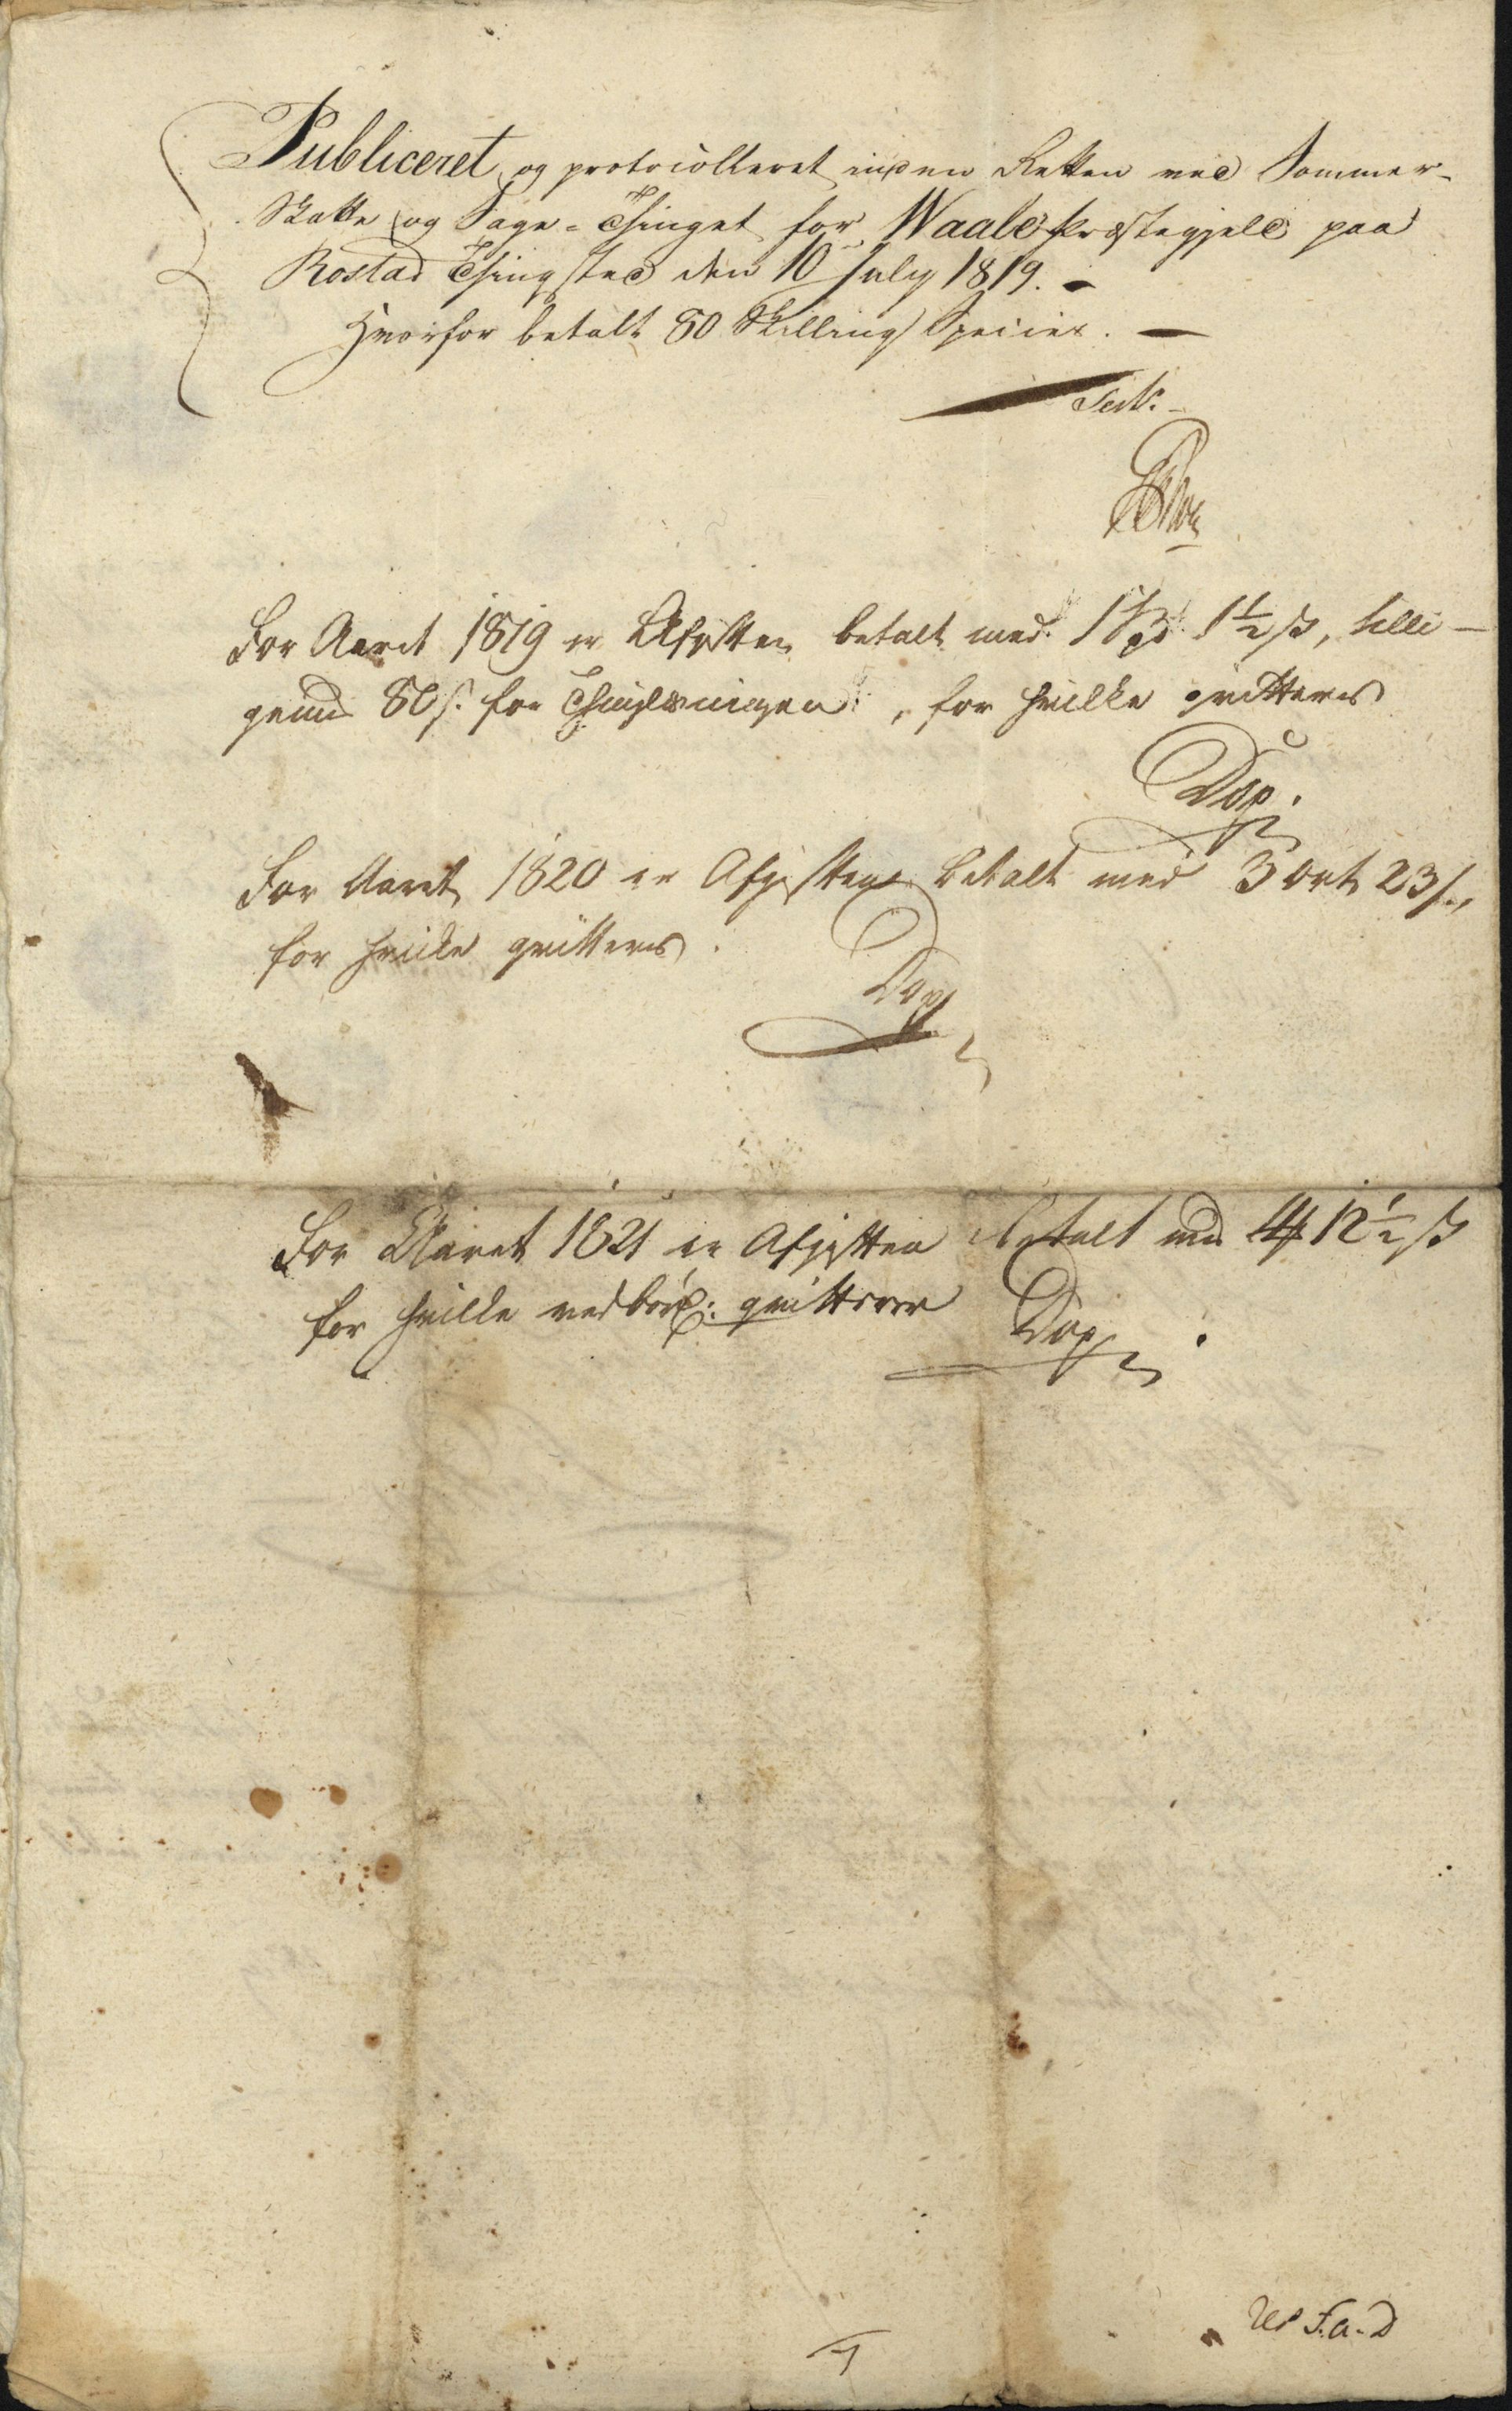 Publiceret og protocolleret inden Retten ved Sommer-
Skatte og Sage-Thinget for Waale Præstegjeld paa
Rostad Thingsted den 10 July 1819. -
Hvorfor betalt 80 Skilling Species. -
Test.
For Aaret 1819 er Afgiften betalt med 1 1½ ß, tilli-
gemed 80 s. for Thinglæsningen, for hvilke qvitteres
Dop.
For Aaret 1820 er Afgiften betalt med 3 Ort 23 s.,
for hvilke qvitteres.
Dop
For Aaret 1821 er Afgiften betalt med 12½ ß
for hvilke qvitterer Dop